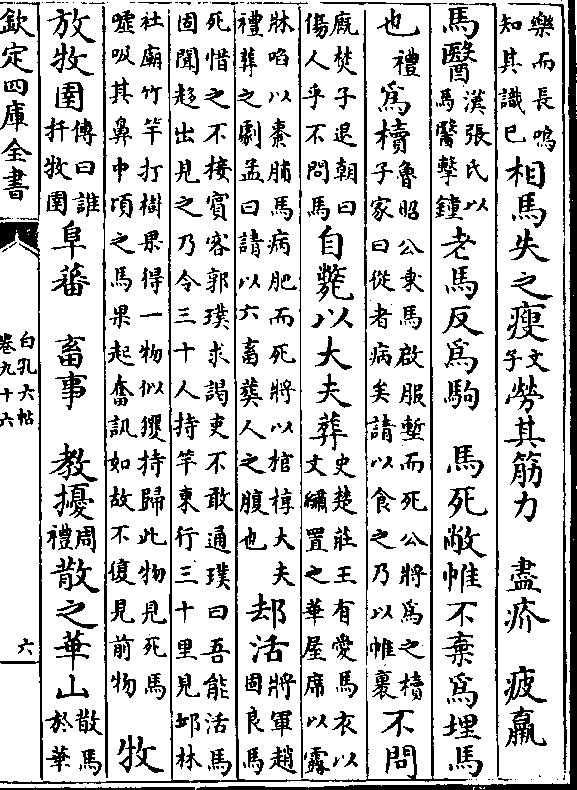 樂而長鳴
知其識已
相馬失之瘦 文子 勞其筋力 盡疥 疲羸
馬醫
漢張氏以
馬醫擊鐘
老馬反為駒 馬死敝帷不棄為埋馬
也 禮 為櫝
魯昭公乘馬啟服塹而死公將為之櫝
子家曰從者病矣請以食之乃以帷裹
不問
廐焚子退朝曰
傷人乎不問馬
自斃以大夫葬
史楚莊王有愛馬衣以
文繡置之華屋席以露
牀啗以棗脯馬病肥而死將以棺椁大夫
禮葬之劇孟曰請以六畜葬人之腹也
却活
將軍趙
固良馬
死惜之不接賓客郭璞求謁吏不敢通璞曰吾能活馬
固聞趍出見之乃令三十人持竿東行三十里見邱林
社廟竹竿打樹果得一物似玃持歸此物見死馬
噓吸其鼻中項之馬果起奮訊如故不復見前物
牧
放牧圉
傳曰誰
扞牧圉
阜蕃 畜事 教擾 周禮 散之華山
散馬
於華
欽定四庫全書
白孔六帖
卷九十六
六